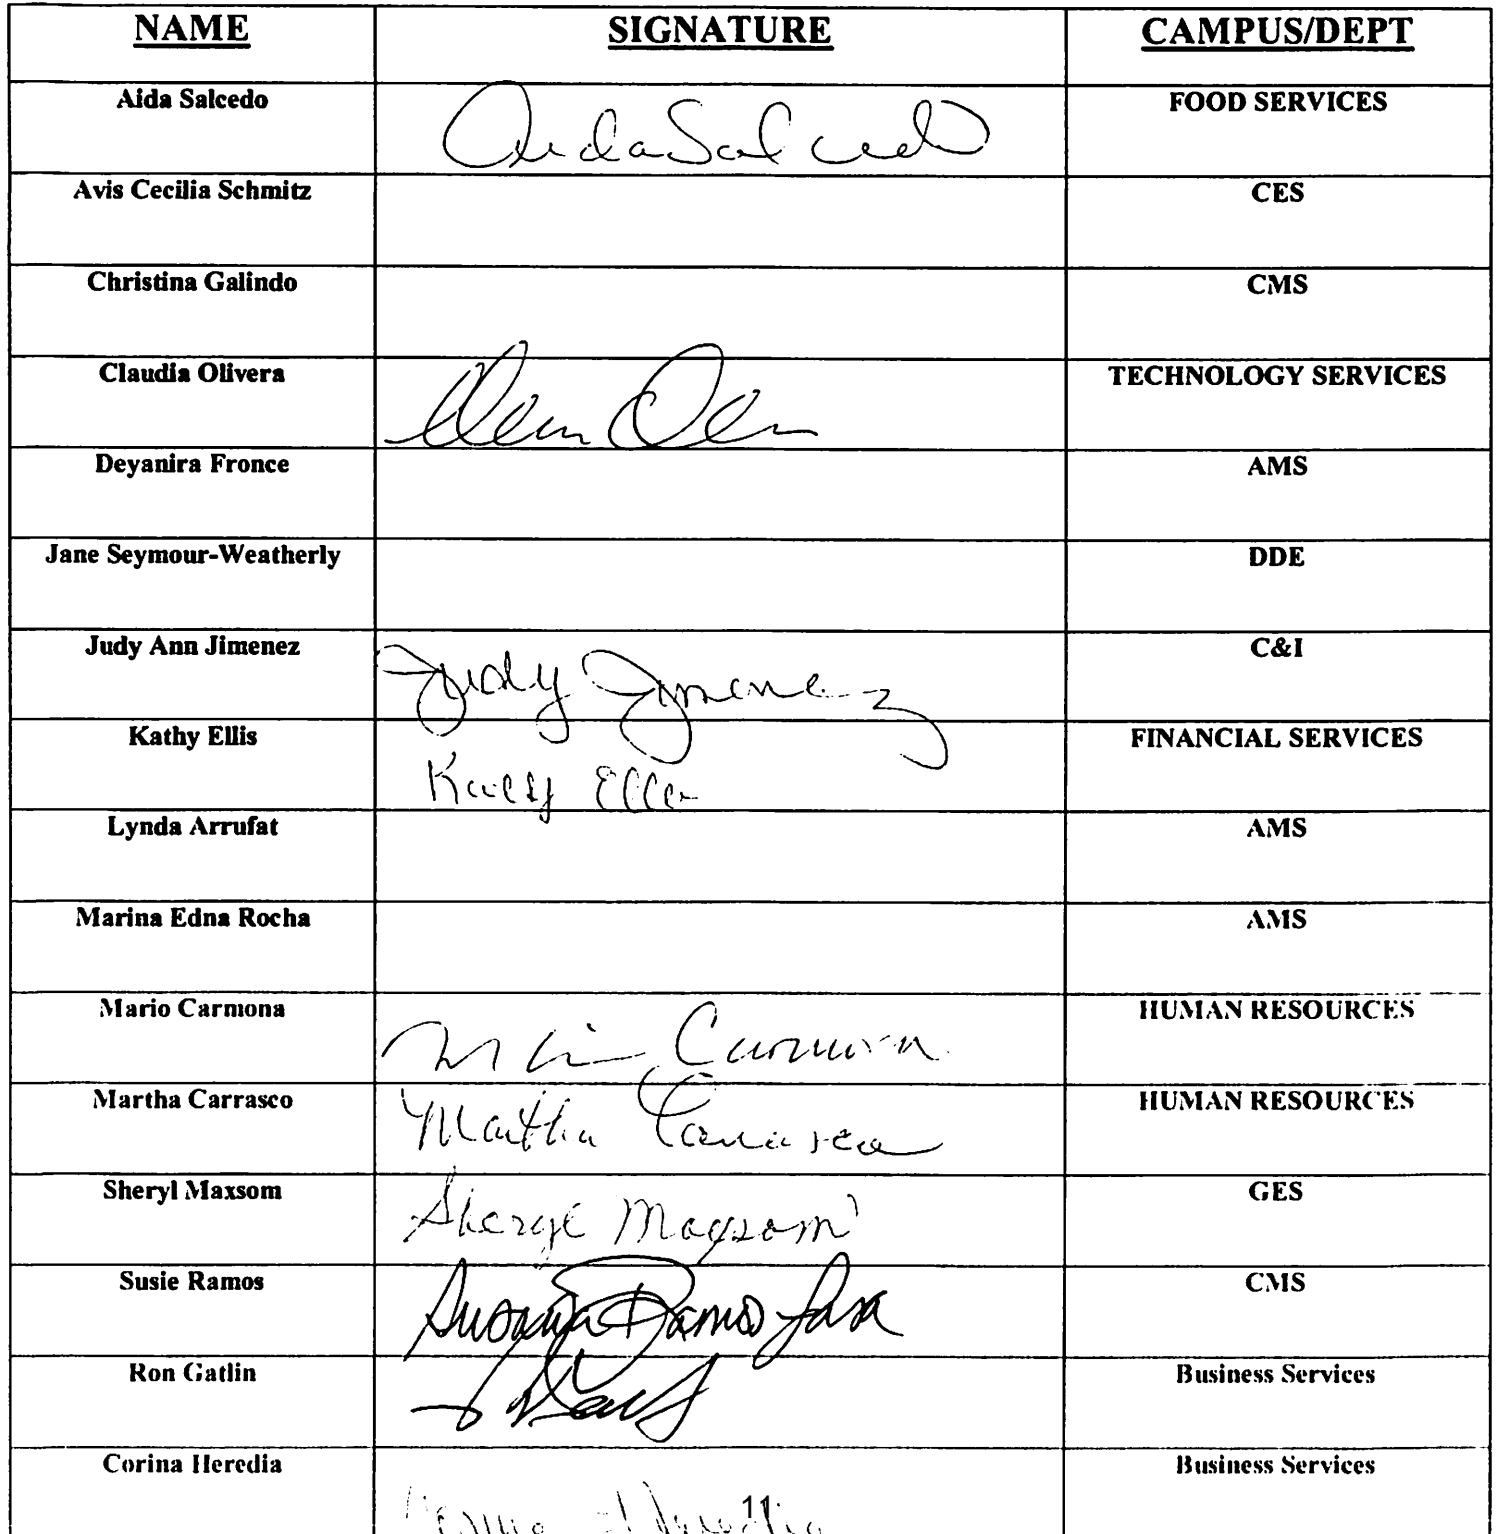 NAME SIGNATURE CAMPUS/DEPT
Aida Salcedo Aida Salcedo FOOD SERVICES
Avis Cecilia Schmitz CES
Christina Galindo CMS
Claudia Olivera TECHNOLOGY SERVICES
Deyanira Fronce AMS
Jane Seymour-Weatherly DDE
Judy Ann Jimenez Judy Jimenez C&I
Kathy Ellis Kathy Ellis FINANCIAL SERVICES
Lynda Arrufat AMS
Marina Edna Rocha AMS
Mario Carmona Carmona HUMAN RESOURCES
Martha Carrasco Martha Carrasco HUMAN RESOURCES
Sheryl Maxsom Sheryl Maxsom GES
Susie Ramos Susana Ramos Lara CMS
Ron Gatlin Business Services
Corina Heredia Heredia Business Services
11